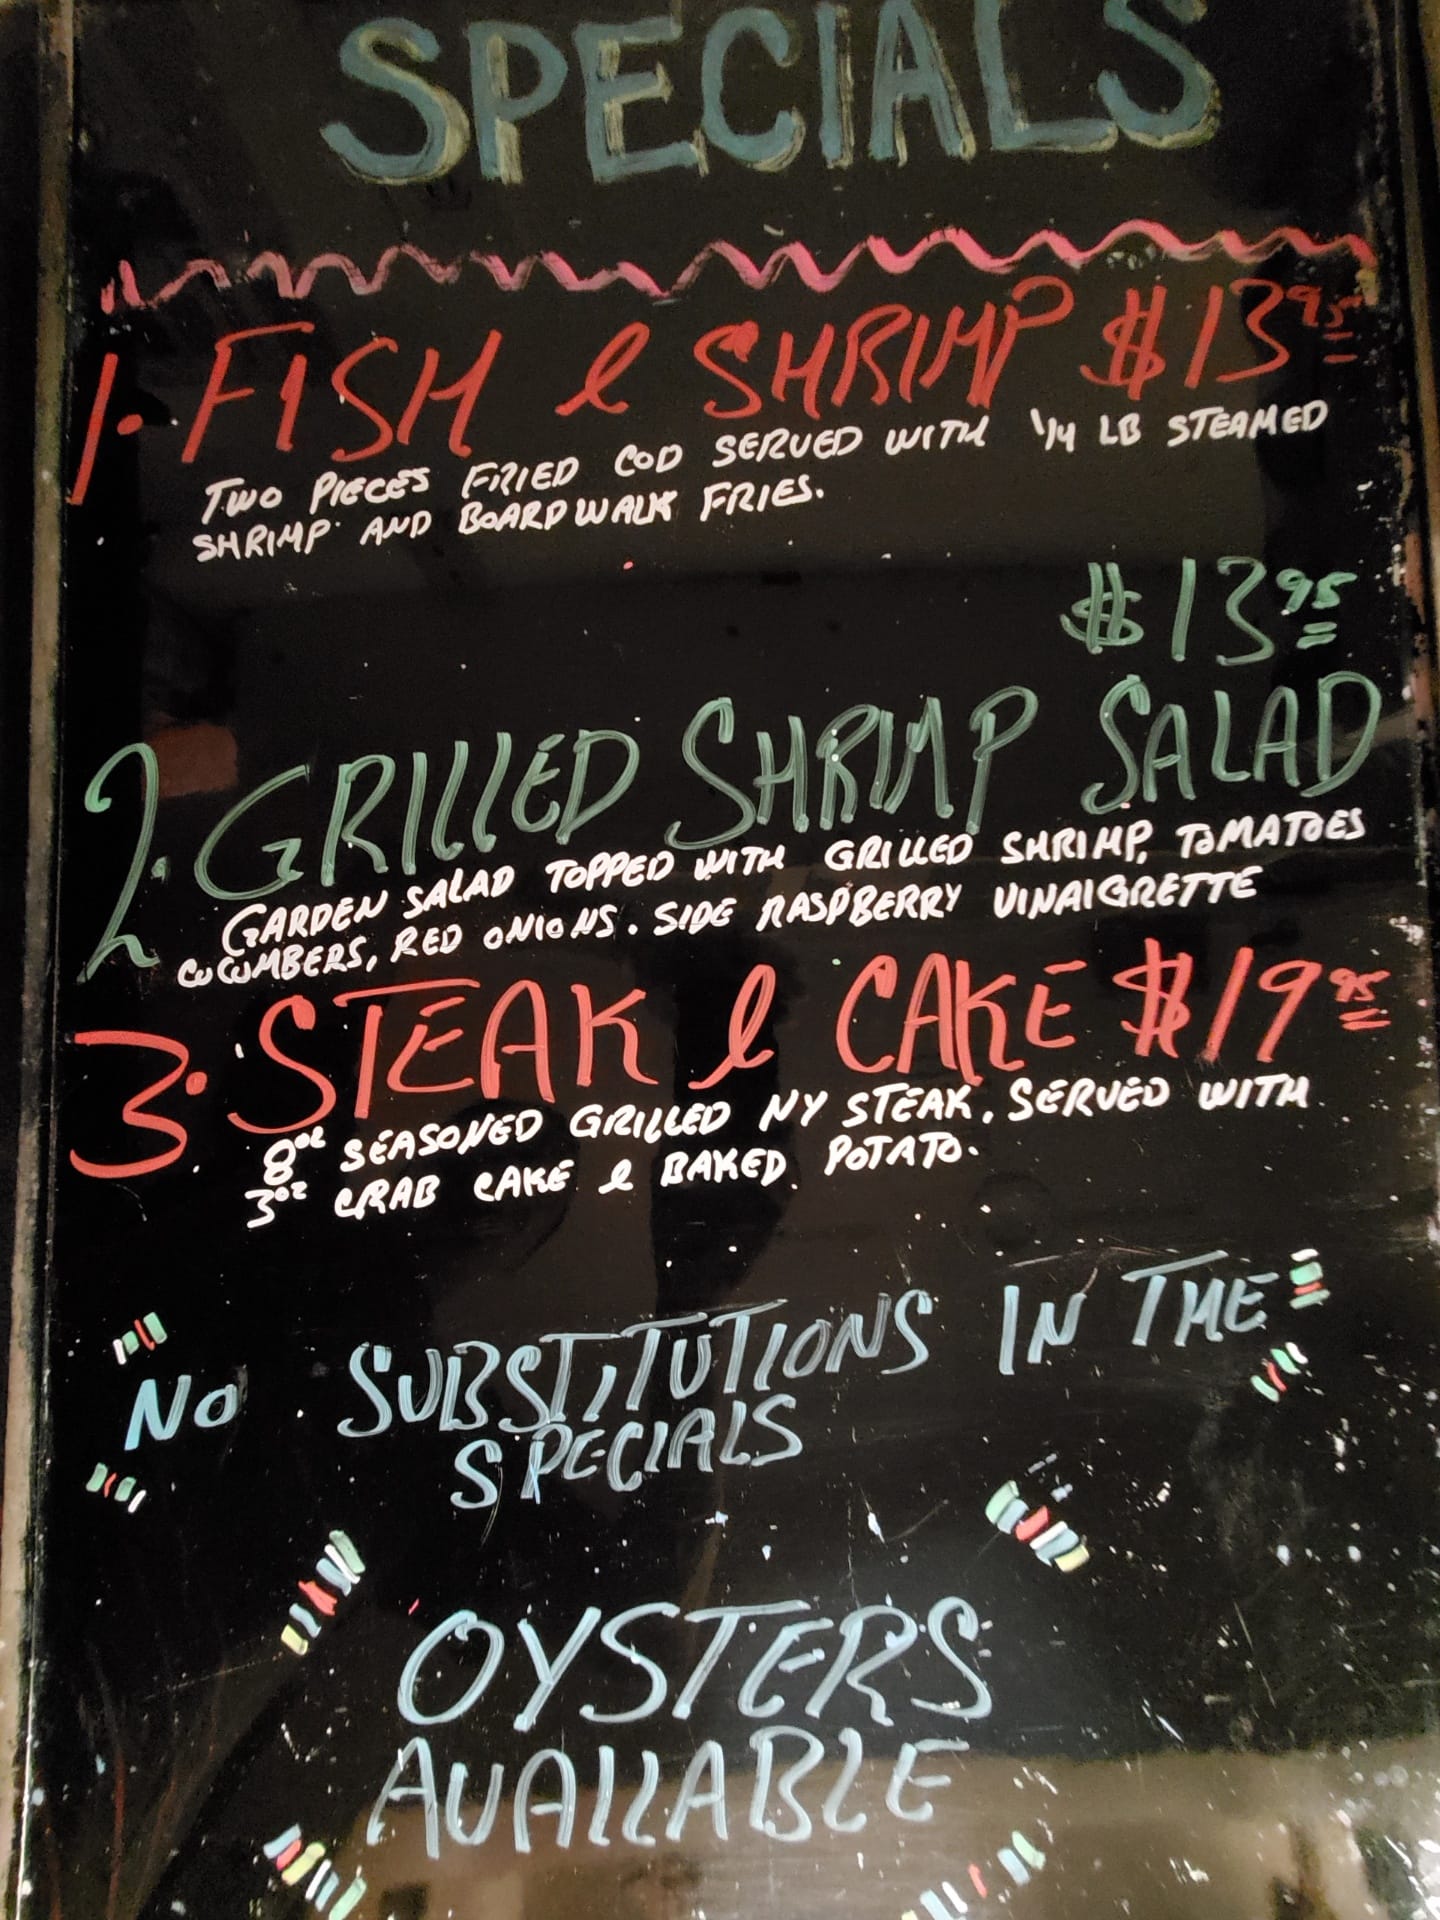 SPECIALS
1. FISH & SHRIMP $13.95
TWO PIECES FRIED COD SERVED WITH 1/4 LB STEAMED
SHRIMP AND BOARDWALK FRIES.
$13.95
2. GRILLED SHRIMP SALAD
GARDEN SALAD TOPPED WITH GRILLED SHRIMP, TOMATOES
CUCUMBERS, RED ONIONS. SIDE RASPBERRY VINAIGRETTE
3. STEAK & CAKE $19.95
8oz SEASONED GRILLED NY STEAK. SERVED WITH
3oz CRAB CAKE & BAKED POTATO.
NO SUBSTITUTIONS IN THE
SPECIALS
OYSTERS
AVAILABLE